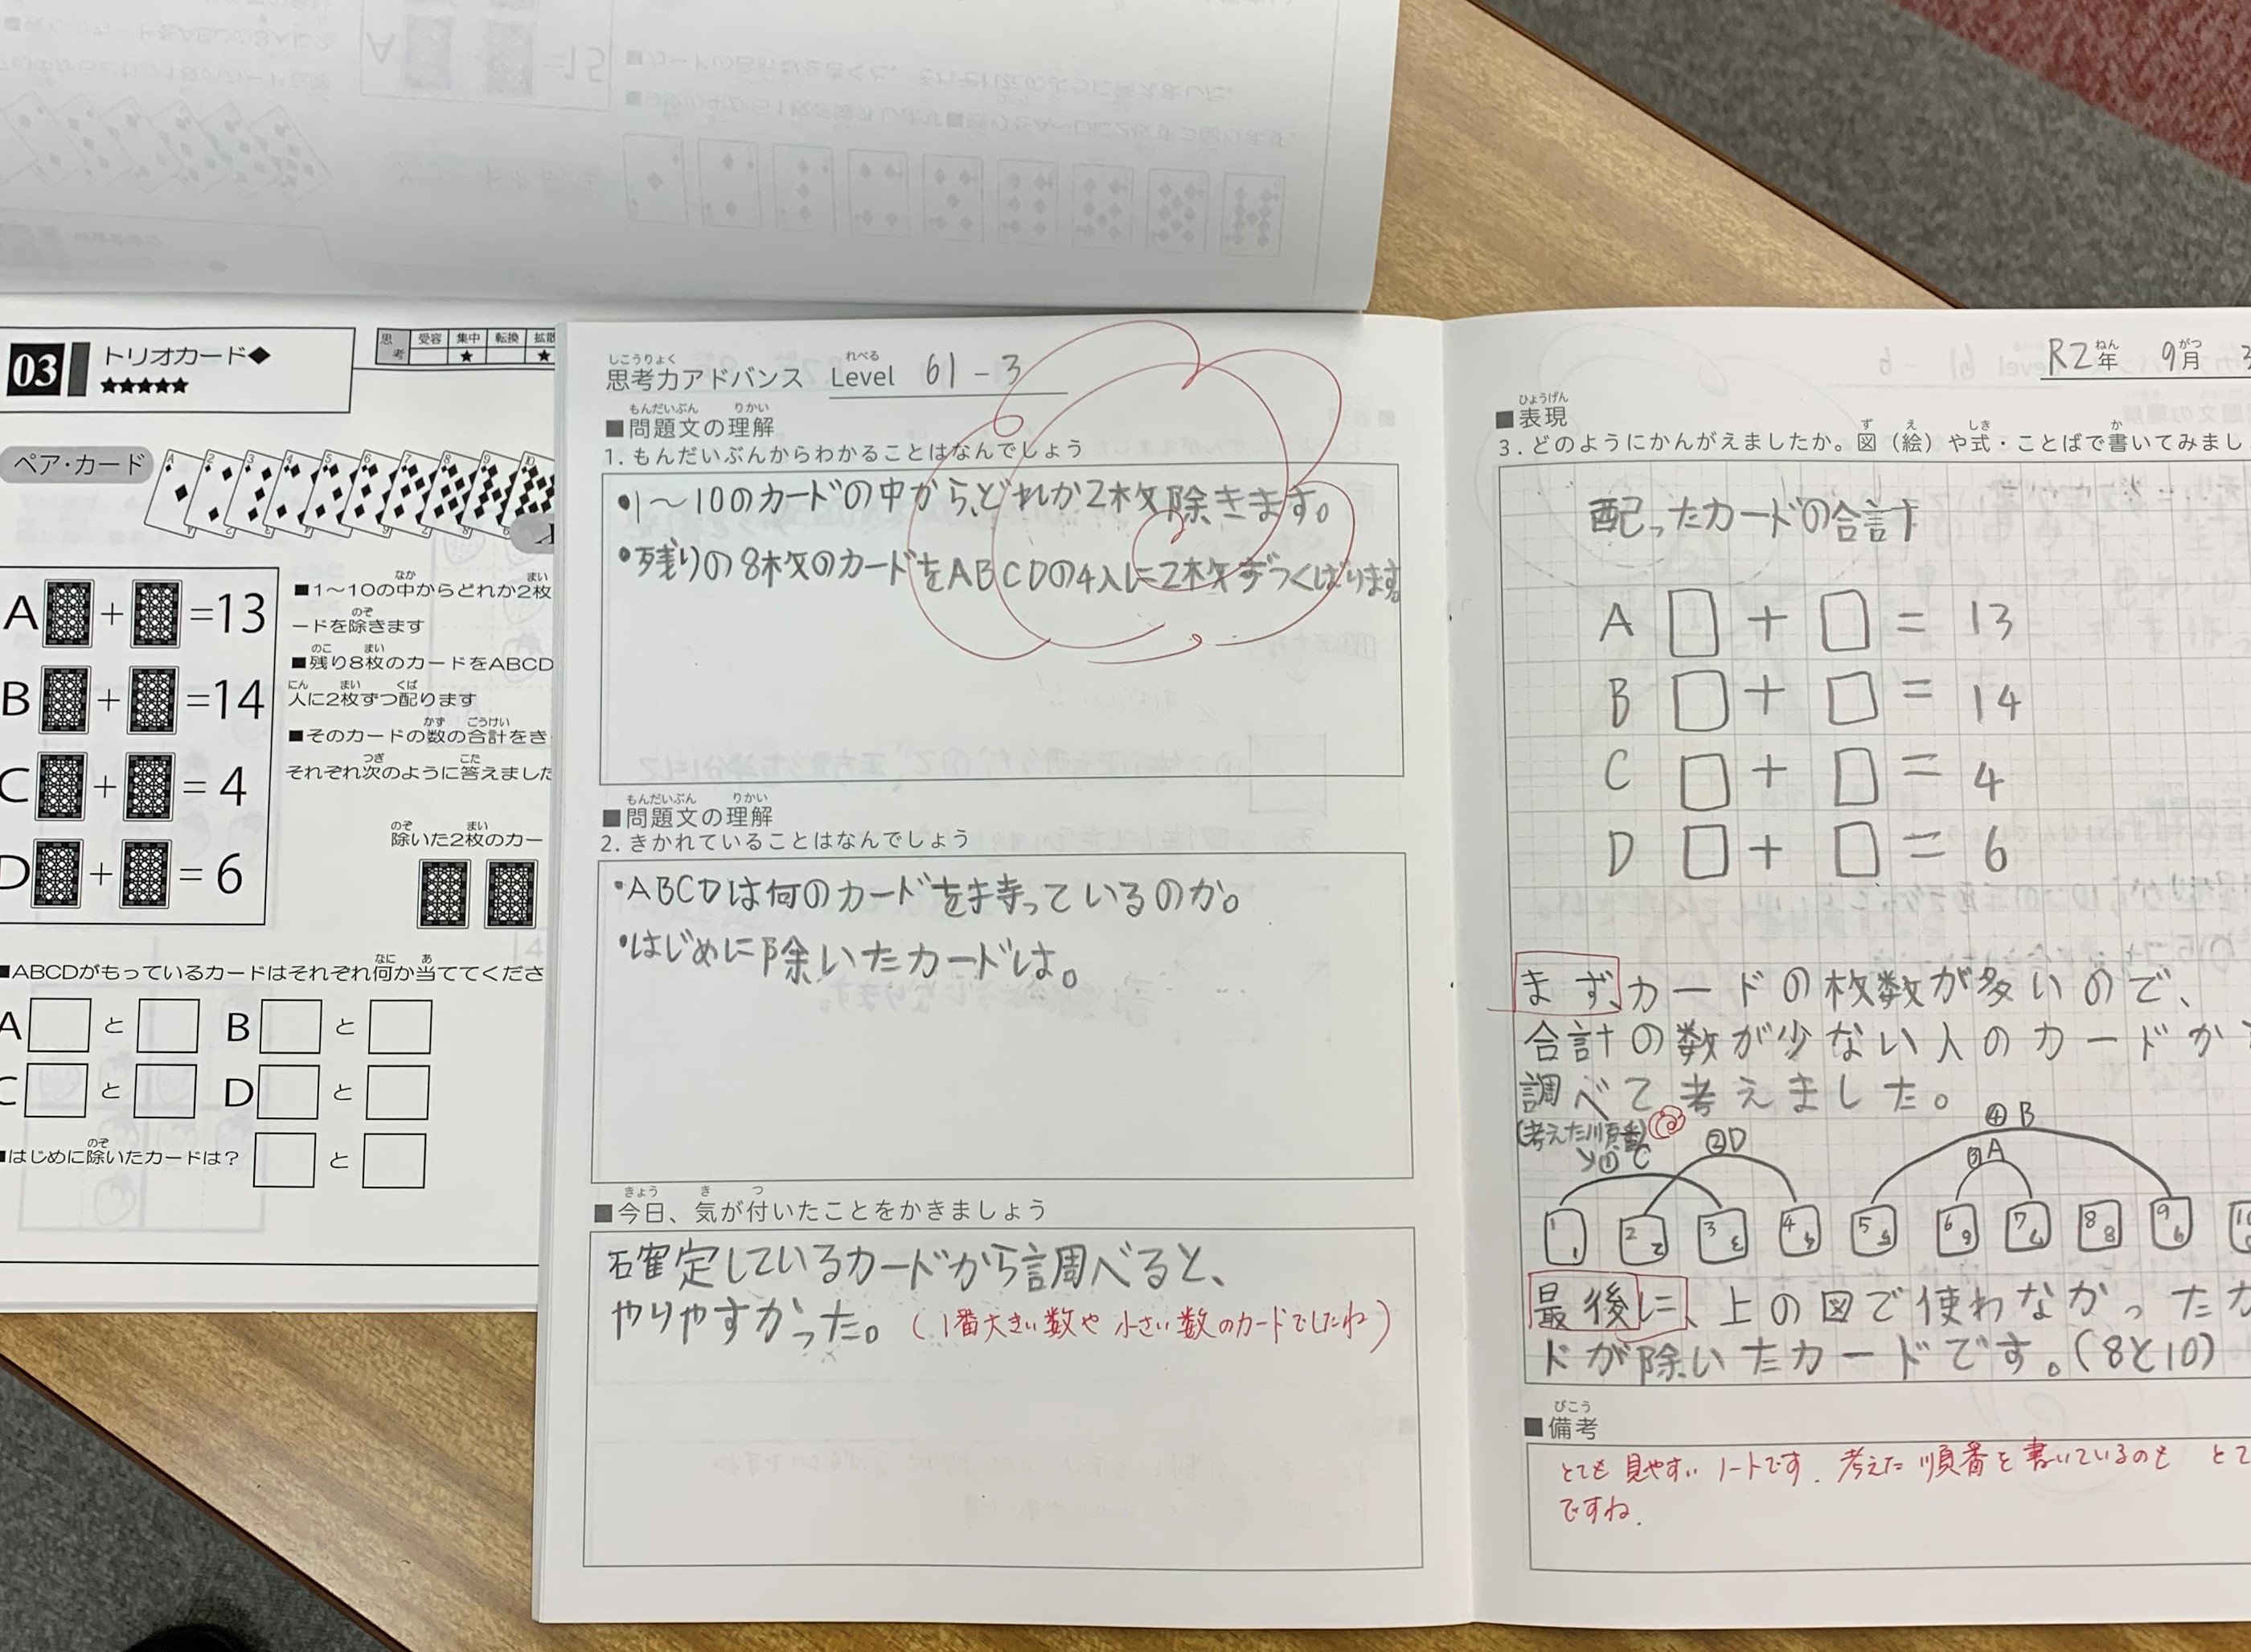 03
トリオカード◆
★★★★★
思考
受容 集中 転換 拡散
★ ★
ペア・カード
A + =13
B + =14
C + = 4
D + = 6
■1～10の中からどれか2枚
ードを除きます
■残り8枚のカードをABCD
人に2枚ずつ配ります
■そのカードの数の合計をき
それぞれ次のように答えました
除いた2枚のカー
■ABCDがもっているカードはそれぞれ何か当ててくださ
A と B と
C と D と
■はじめに除いたカードは？ と
思考力アドバンス Level 61-3
■問題文の理解
1. もんだいぶんからわかることはなんでしょう
•1～10のカードの中から、どれか2枚除きます。
•残りの8枚のカードをABCDの4人に2枚ずつくばります。
■問題文の理解
2. きかれていることはなんでしょう
•ABCDは何のカードを持っているのか。
•はじめに除いたカードは。
■今日、気が付いたことをかきましょう
確定しているカードから調べると、
やりやすかった。(1番大きい数や小さい数のカードでしたね)
R2年 9月 3
■表現
3. どのようにかんがえましたか。図（絵）や式・ことばで書いてみまし
配ったカードの合計
A □ + □ = 13
B □ + □ = 14
C □ + □ = 4
D □ + □ = 6
まず、カードの枚数が多いので、
合計の数が少ない人のカードか
調べて考えました。
(考えた順番)
①C ②D ③A ④B
1 2 3 4 5 6 7 8 9 10
最後に、上の図で使わなかったカ
ドが除いたカードです。(8と10)
■備考
とても見やすいノートです。考えた順番を書いているのも とて
ですね。